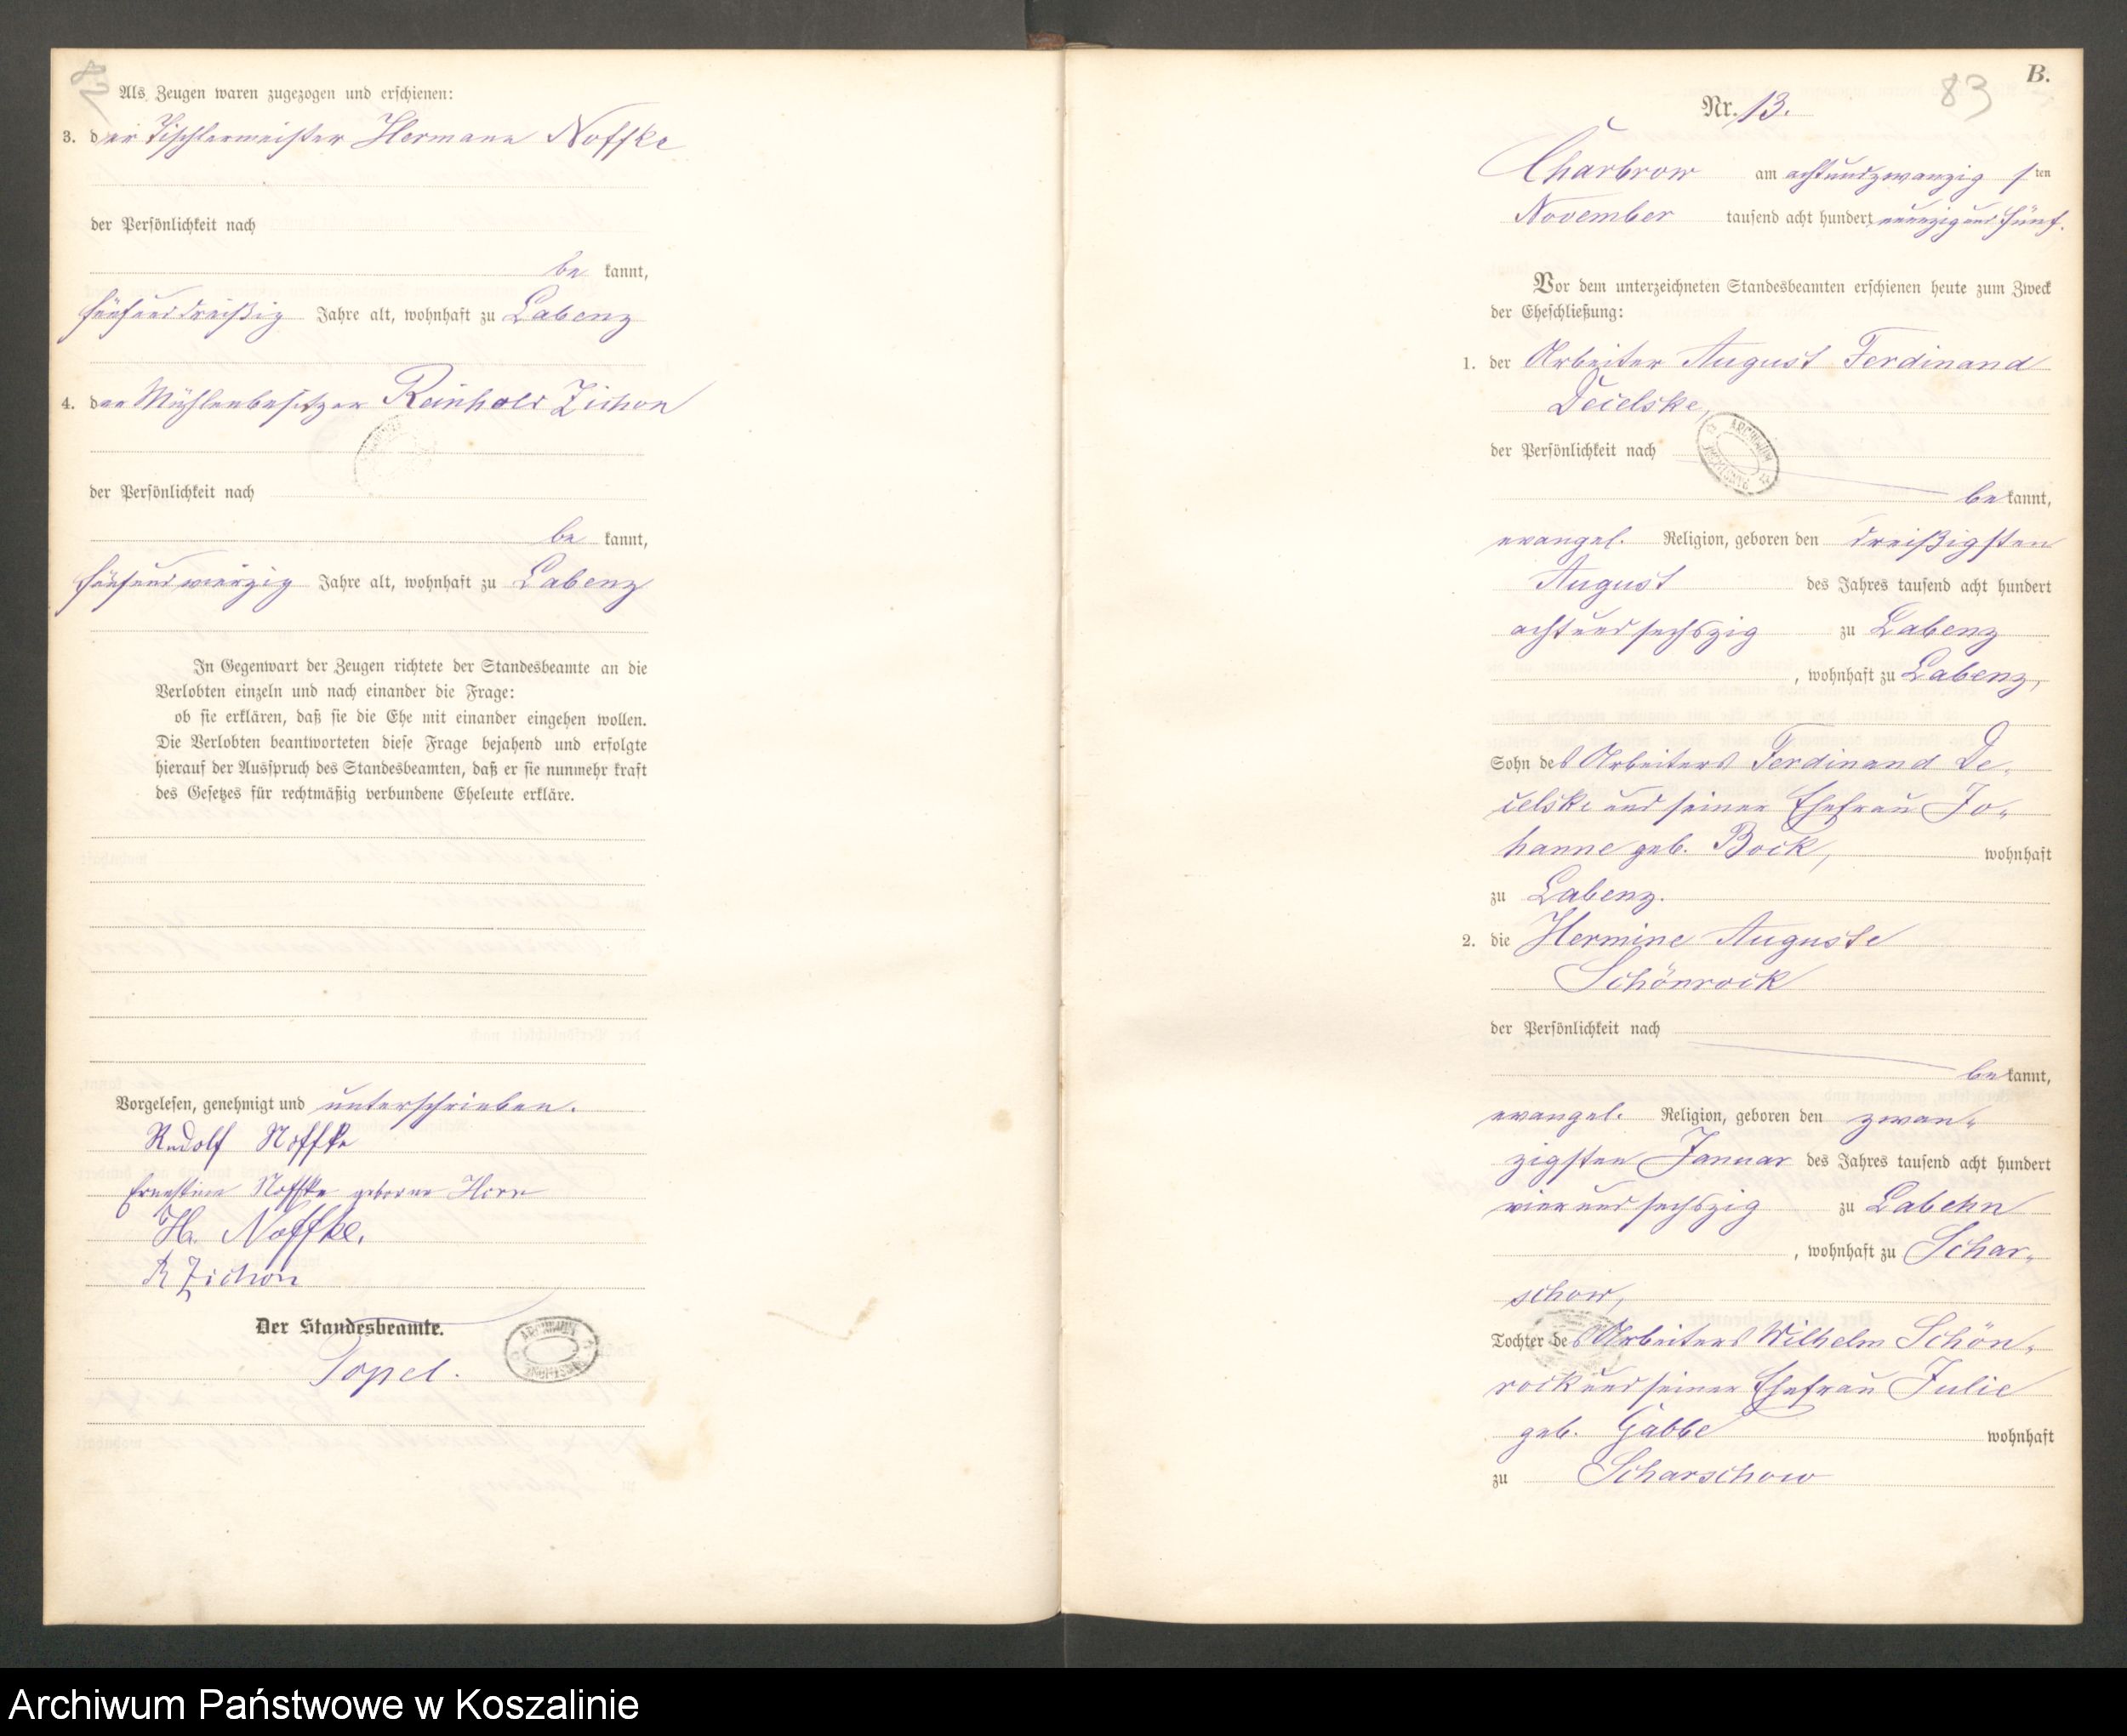 Als Zeugen waren zugezogen und erschienen:
3. der Tischlermeister Hermann Noffke
der Persönlichkeit nach
be kannt,
fünfunddreißig Jahre alt, wohnhaft zu Labenz
4. der Mühlenbesitzer Reinhold Zichon
der Persönlichkeit nach
be kannt,
fünfundvierzig Jahre alt, wohnhaft zu Labenz
In Gegenwart der Zeugen richtete der Standesbeamte an die
Verlobten einzeln und nach einander die Frage:
ob sie erklären, daß sie die Ehe mit einander eingehen wollen.
Die Verlobten beantworteten diese Frage bejahend und erfolgte
hierauf der Ausspruch des Standesbeamten, daß er sie nunmehr kraft
des Gesetzes für rechtmäßig verbundene Eheleute erkläre.
Vorgelesen, genehmigt und unterschrieben.
Rudolf Noffke
Ernestine Noffke geborne Horn
H. Noffke.
R Zichon
Der Standesbeamte.
Topel.
B.
83
Nr. 13.
Charbrow am achtundzwanzigsten
November tausend acht hundert neunzig und fünf.
Vor dem unterzeichneten Standesbeamten erschienen heute zum Zweck
der Eheschließung:
1. der Arbeiter August Ferdinand
Decielske,
der Persönlichkeit nach
be kannt,
evangel. Religion, geboren den dreißigsten
August des Jahres tausend acht hundert
achtundsechszig zu Labenz
, wohnhaft zu Labenz,
Sohn des Arbeiters Ferdinand De-
cielske und seiner Ehefrau Jo-
hanne geb. Bock, wohnhaft
zu Labenz.
2. die Hermine Auguste
Schönrock
der Persönlichkeit nach
be kannt,
evangel. Religion, geboren den zwan-
zigsten Januar des Jahres tausend acht hundert
vierundsechszig zu Labehn
, wohnhaft zu Schar-
schow,
Tochter des Arbeiters Wilhelm Schön-
rock und seiner Ehefrau Julie
geb. Gabbe wohnhaft
zu Scharschow
Archiwum Państwowe w Koszalinie